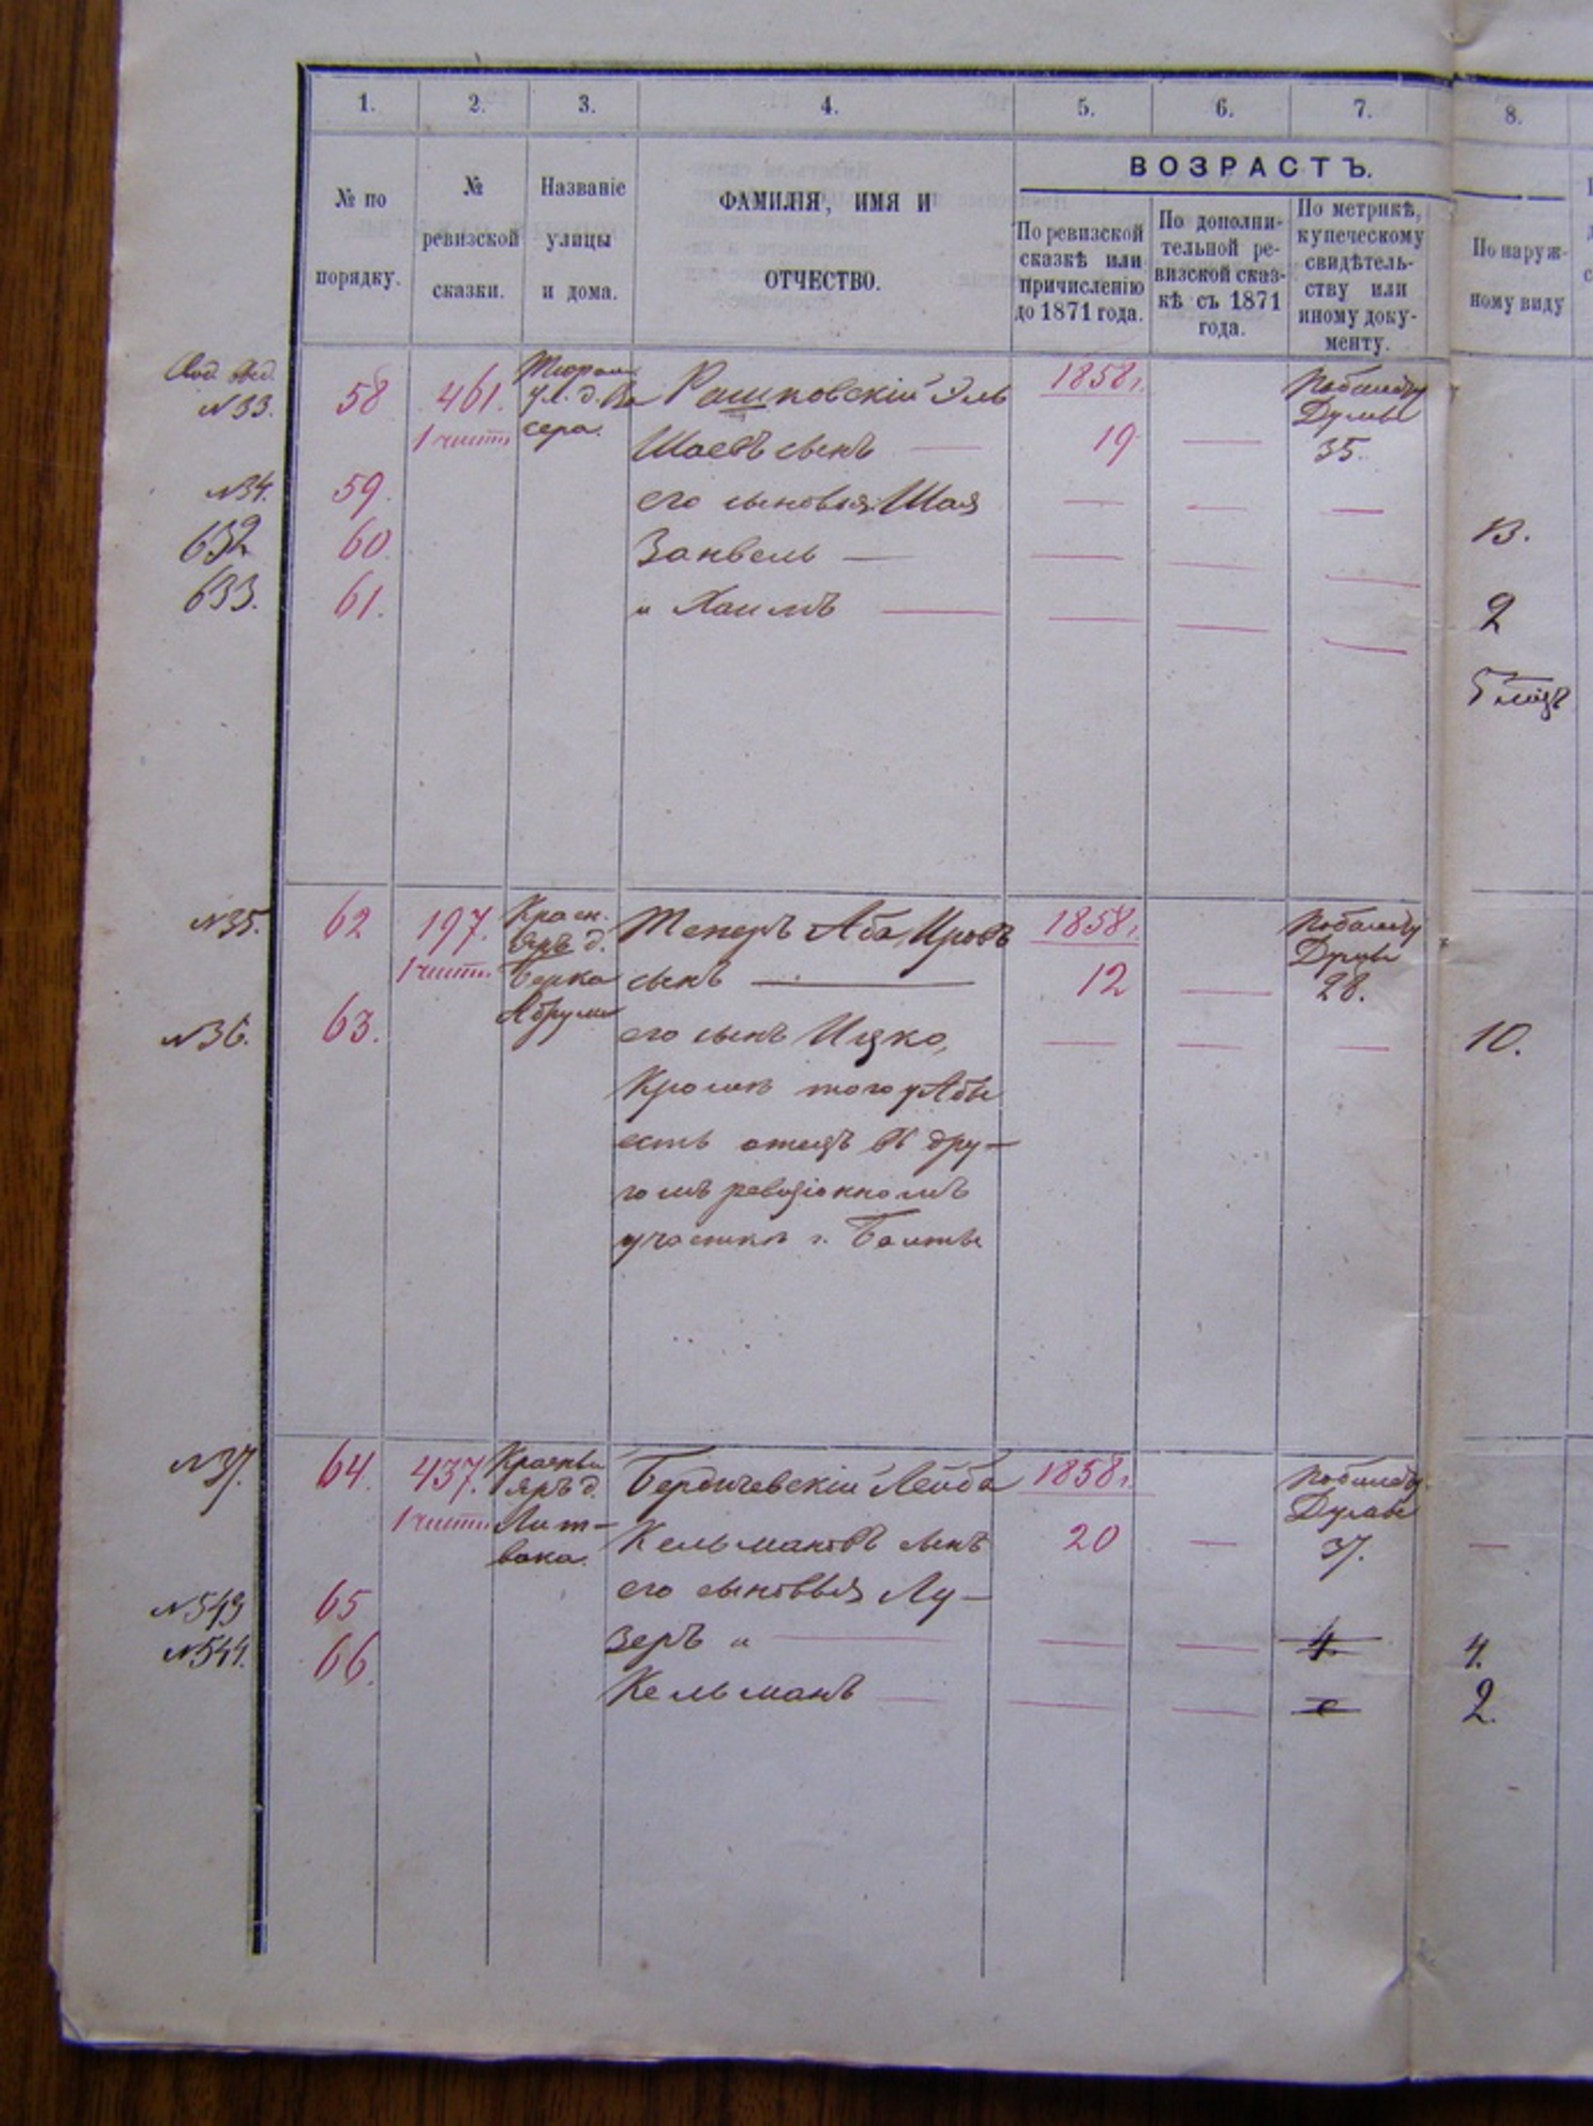 1. 2. 3. 4. 5. 6. 7. 8.
№ по порядку.
№ ревизской сказки.
Названіе улицы и дома.
ФАМИЛІЯ, ИМЯ И ОТЧЕСТВО.
ВОЗРАСТЪ.
По ревизской сказкѣ или причисленію до 1871 года.
По дополнительной ревизской сказкѣ съ 1871 года.
По метрикѣ, купеческому свидѣтельству или иному документу.
По наружному виду
№33. 58 461. ул. д. Рашковскій Эль 1858 г.
1 части сера. Шаевъ сынъ — 19 — Думы 35.
№34. 59. его сыновья: Шая — — — 13.
632 60. Занвель — — — —
633. 61. и Хаимъ — — — — 2
5 міця
№35. 62 197. Красн. Теперъ Аба Ировъ 1858 г.
1 части. Яръ д. Берка сынъ — 12 — Думы 28.
№36. 63. его сынъ Ицко, — — — 10.
Кромѣ того у Абы
есть отецъ въ дру-
гомъ ревизіонномъ
участкѣ г. Балты
№37. 64. 437. Красный Бердичевскій Лейба 1858 г.
1 части Яръ д. Лит-
вака. Кельмановъ сынъ 20 — Думы 37. —
№543 65 его сыновья Лу-
№544. 66. зеръ и — — — 4. 4.
Кельманъ — — — 2.